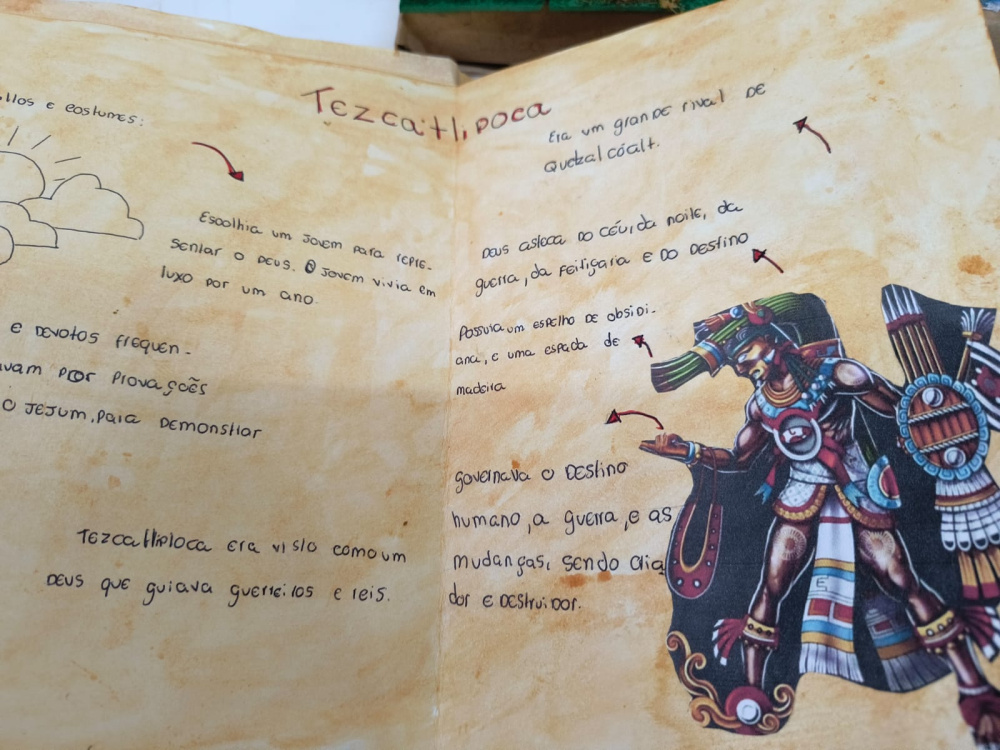 Tezcatlipoca
e costumes:
Escolhia um jovem para repre-
sentar o Deus. O jovem vivia em
luxo por um ano.
e Devotos frequen-
vam por provações
o jejum, para demonstrar
Tezcatliploca era visto como um
Deus que guiava guerreiros e reis.
Era um grande rival de
Quetzalcóalt.
Deus asteca do céu, da noite, da
guerra, da feitiçaria e do Destino
Possuia um espelho de obsidi-
ana, e uma espada de
madeira
governava o Destino
humano, a guerra, e as
mudanças, sendo cria
dor e Destruidor.